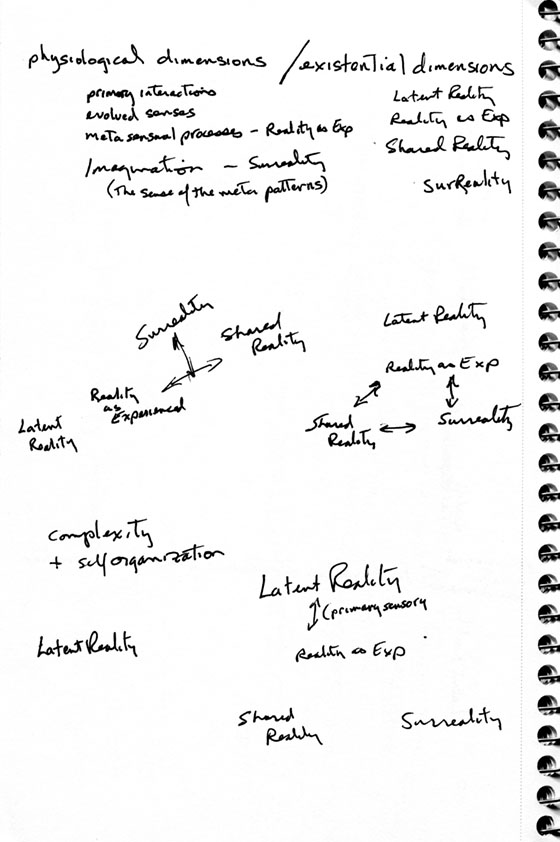 physiological dimensions / existential dimensions
primary interactions
evolved senses
meta sensual processes – Reality as Exp
Imagination – Surreality
(The sense of the meta patterns)
Latent Reality
Reality as Exp
Shared Reality
SurReality
Surreality
Shared
Reality
Reality
as
Experienced
Latent
Reality
Latent Reality
Reality as Exp
Shared
Reality
Surreality
complexity
+ self organization
Latent Reality
Latent Reality
(primary sensory
Reality as Exp
Shared
Reality
Surreality